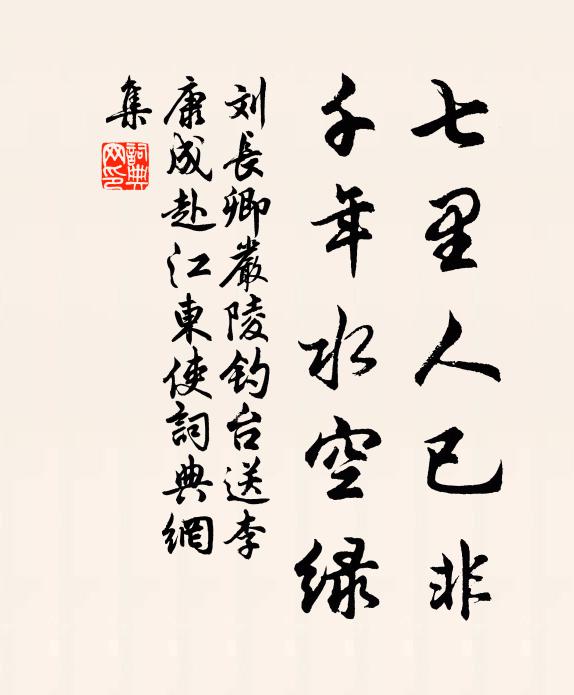 七里人已非
千年水空绿
刘長卿嚴陵钓台送李
康成赴江東使詞典網
集
詞典
网印